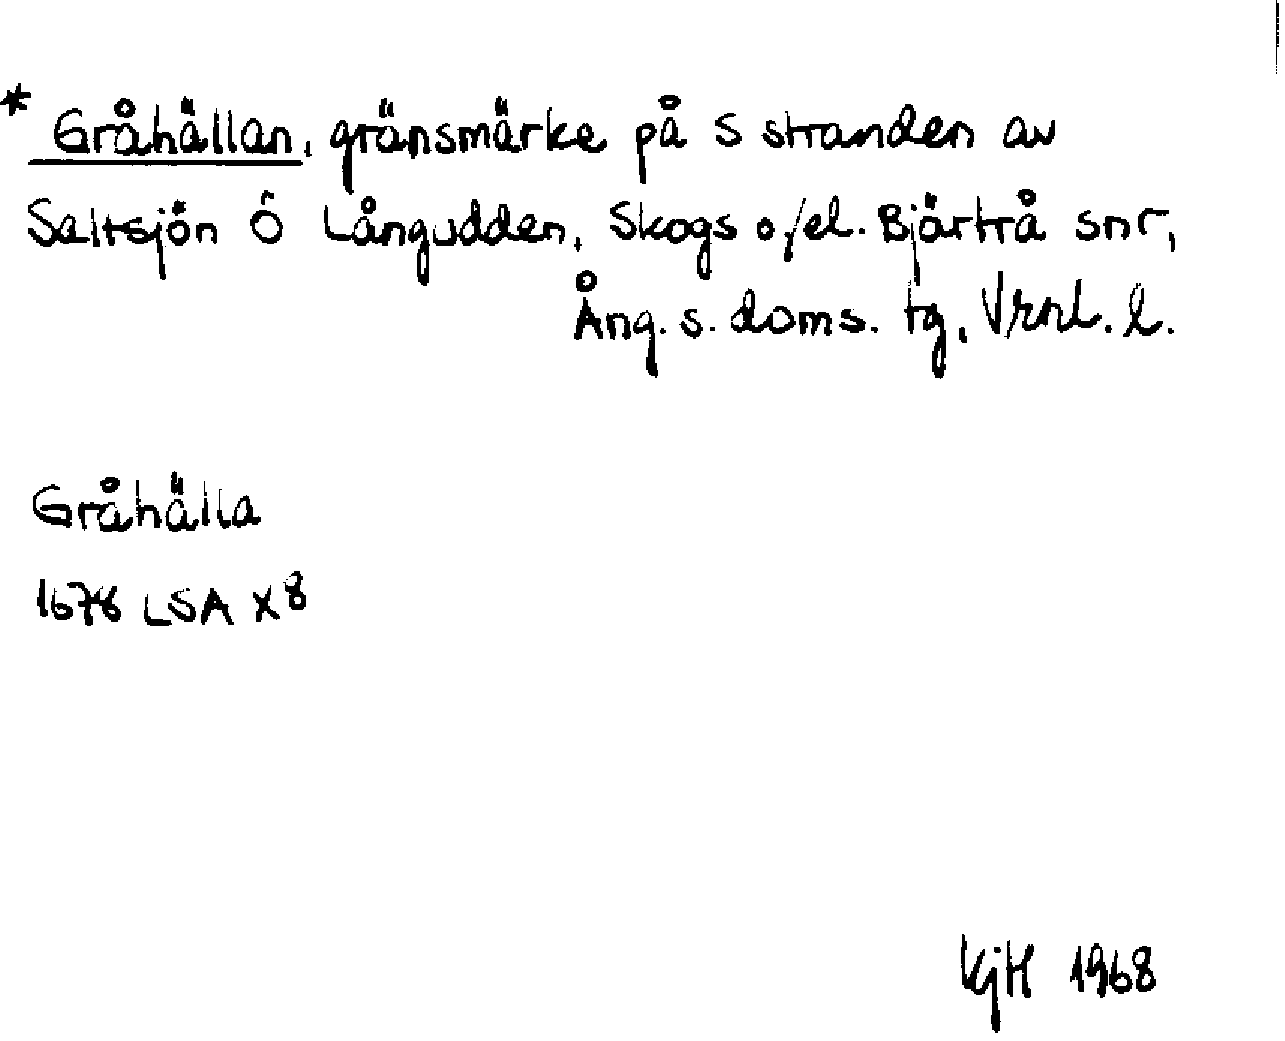 * Gråhällan, gränsmärke på S stranden av
Saltsjön Ö Långudden, Skogs o/el. Bjärtrå snr,
Ång. s. doms. tg, Vrnl. l.
Gråhälla
1678 LSA X8
KjH 1968